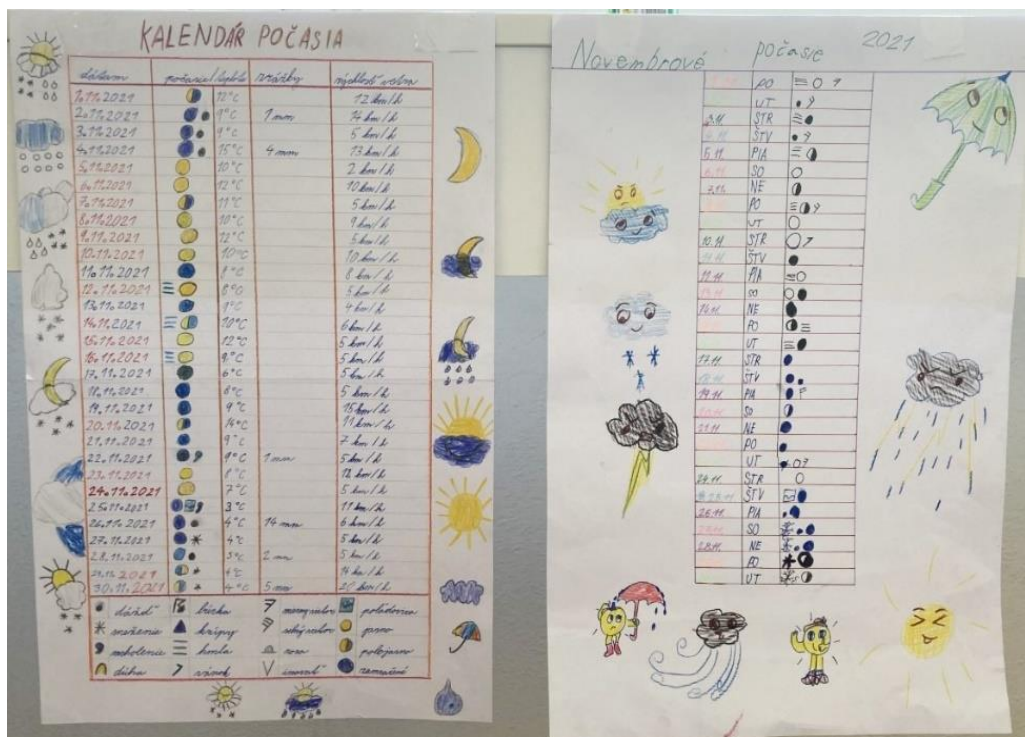 KALENDÁR POČASIA
dátum počasie/teplota zrážky rýchlosť vetra
1.11.2021 12°C 12 km/h
2.11.2021 9°C 1 mm 14 km/h
3.11.2021 9°C 5 km/h
4.11.2021 15°C 4 mm 13 km/h
5.11.2021 10°C 2 km/h
6.11.2021 12°C 10 km/h
7.11.2021 11°C 5 km/h
8.11.2021 10°C 9 km/h
9.11.2021 12°C 5 km/h
10.11.2021 10°C 10 km/h
11.11.2021 8°C 8 km/h
12.11.2021 8°C 5 km/h
13.11.2021 9°C 4 km/h
14.11.2021 10°C 6 km/h
15.11.2021 12°C 5 km/h
16.11.2021 9°C 5 km/h
17.11.2021 6°C 5 km/h
18.11.2021 8°C 5 km/h
19.11.2021 9°C 15 km/h
20.11.2021 14°C 11 km/h
21.11.2021 9°C 7 km/h
22.11.2021 9°C 1 mm 5 km/h
23.11.2021 8°C 12 km/h
24.11.2021 7°C 5 km/h
25.11.2021 3°C 11 km/h
26.11.2021 4°C 14 mm 6 km/h
27.11.2021 4°C 5 km/h
28.11.2021 3°C 2 mm 5 km/h
29.11.2021 4°C 14 km/h
30.11.2021 4°C 5 mm km/h
dážď búrka polovica
sneženie krúpy jasno
mrholenie hmla rosa polojasno
dúha vánok zamračené
Novembrové počasie 2021
PO
UT
3.11. STR
ŠTV
5.11. PIA
SO
7.11. NE
PO
UT
10.11. STR
ŠTV
12.11. PIA
13.11. SO
14.11. NE
PO
UT
17.11. STR
ŠTV
19.11. PIA
20.11. SO
21.11. NE
PO
UT
24.11. STR
ŠTV
26.11. PIA
SO
28.11. NE
PO
UT